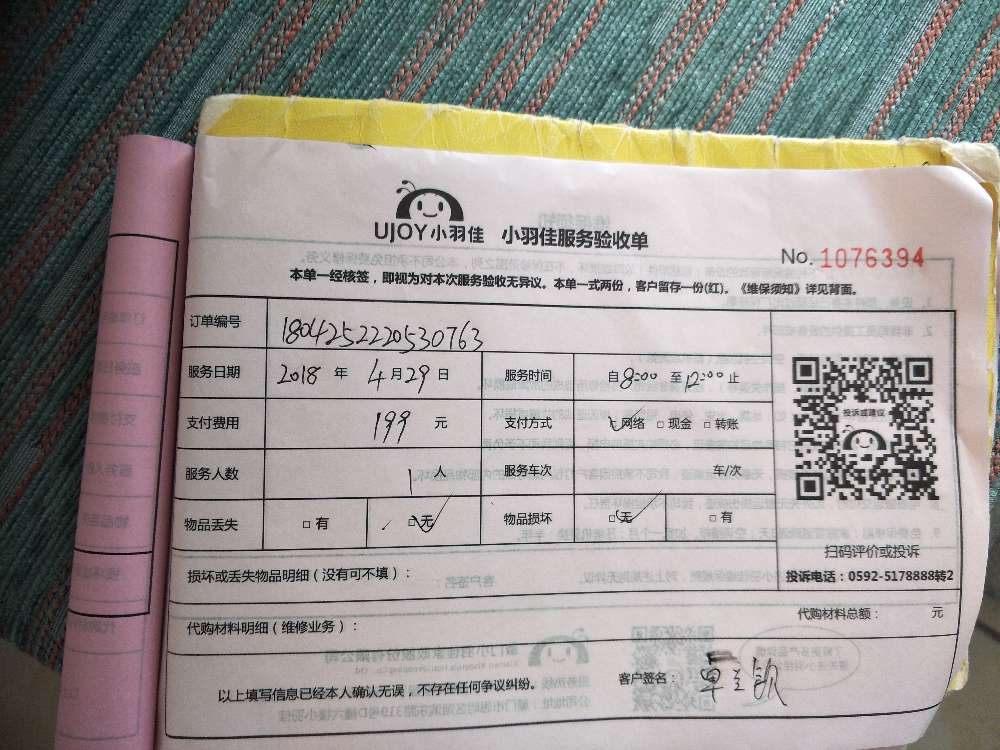 UJOY小羽佳 小羽佳服务验收单
No. 1076394
本单一经核签，即视为对本次服务验收无异议。本单一式两份，客户留存一份(红)。《维保须知》详见背面。
订单编号 1804252220530763
服务日期 2018 年 4 月 29 日 服务时间 自 8:00 至 12:00 止
支付费用 199 元 支付方式 ☑网络 □现金 □转账
服务人数 1 人 服务车次 车/次
物品丢失 □有 ☑无 物品损坏 ☑无 □有
投诉或建议
扫码评价或投诉
投诉电话：0592-5178888转2
损坏或丢失物品明细（没有可不填）：
代购材料明细（维修业务）： 代购材料总额： 元
以上填写信息已经本人确认无误，不存在任何争议纠纷。 客户签名：